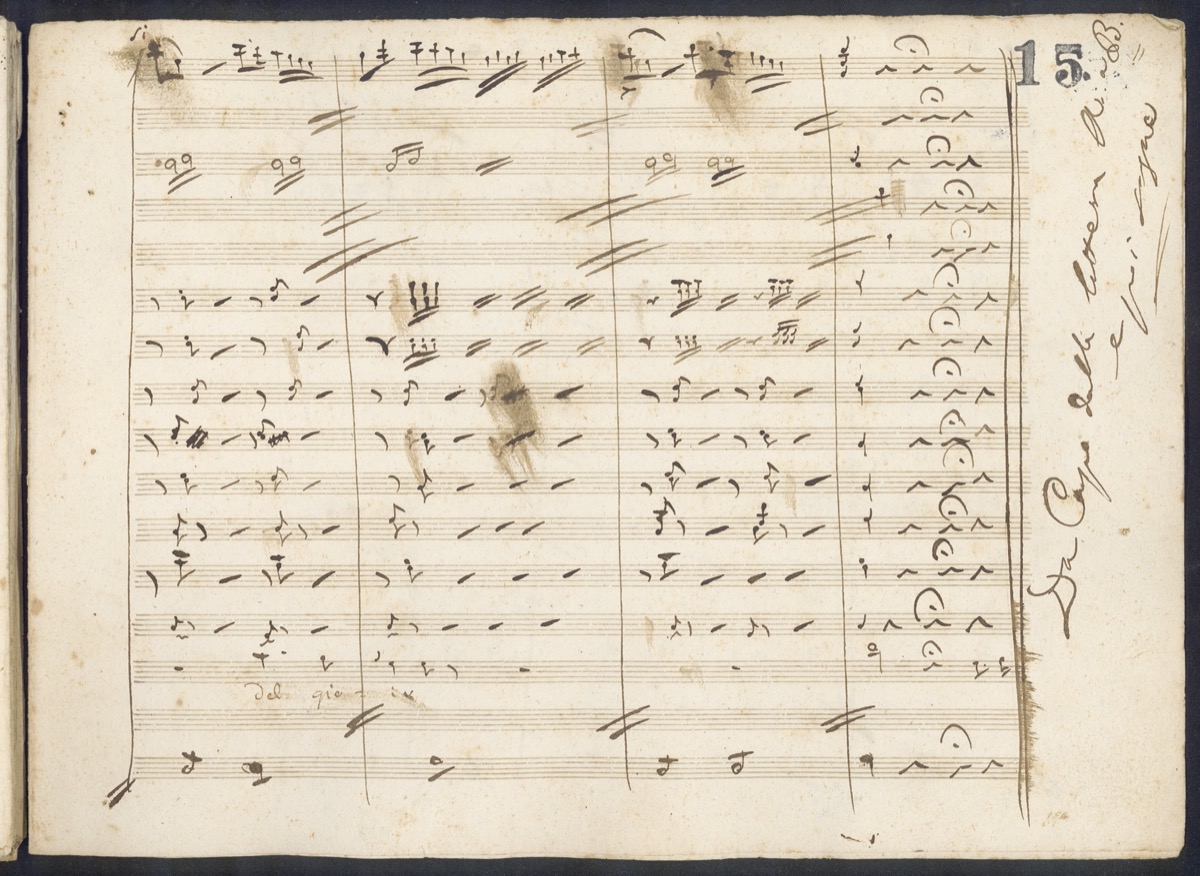 15.
Da Capo dalla lettera B.
e poi segue
del gio